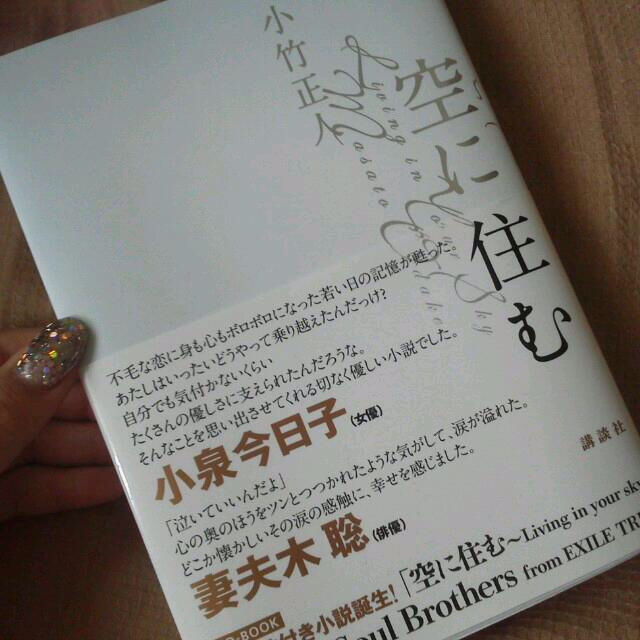 小竹正人
空に住む
Living in
Masato
Sky
不毛な恋に身も心もボロボロになった若い日の記憶が甦った。
あたしはいったいどうやって乗り越えたんだっけ?
自分でも気付かないくらい
たくさんの優しさに支えられたんだろうな。
そんなことを思い出させてくれる切なく優しい小説でした。
小泉今日子(女優)
「泣いていいんだよ」
心の奥のほうをツンとつつかれたような気がして、涙が溢れた。
どこか懐かしいその涙の感触に、幸せを感じました。
妻夫木 聡(俳優)
講談社
BOOK
付き小説誕生!「空に住む~Living in your sky
Soul Brothers from EXILE